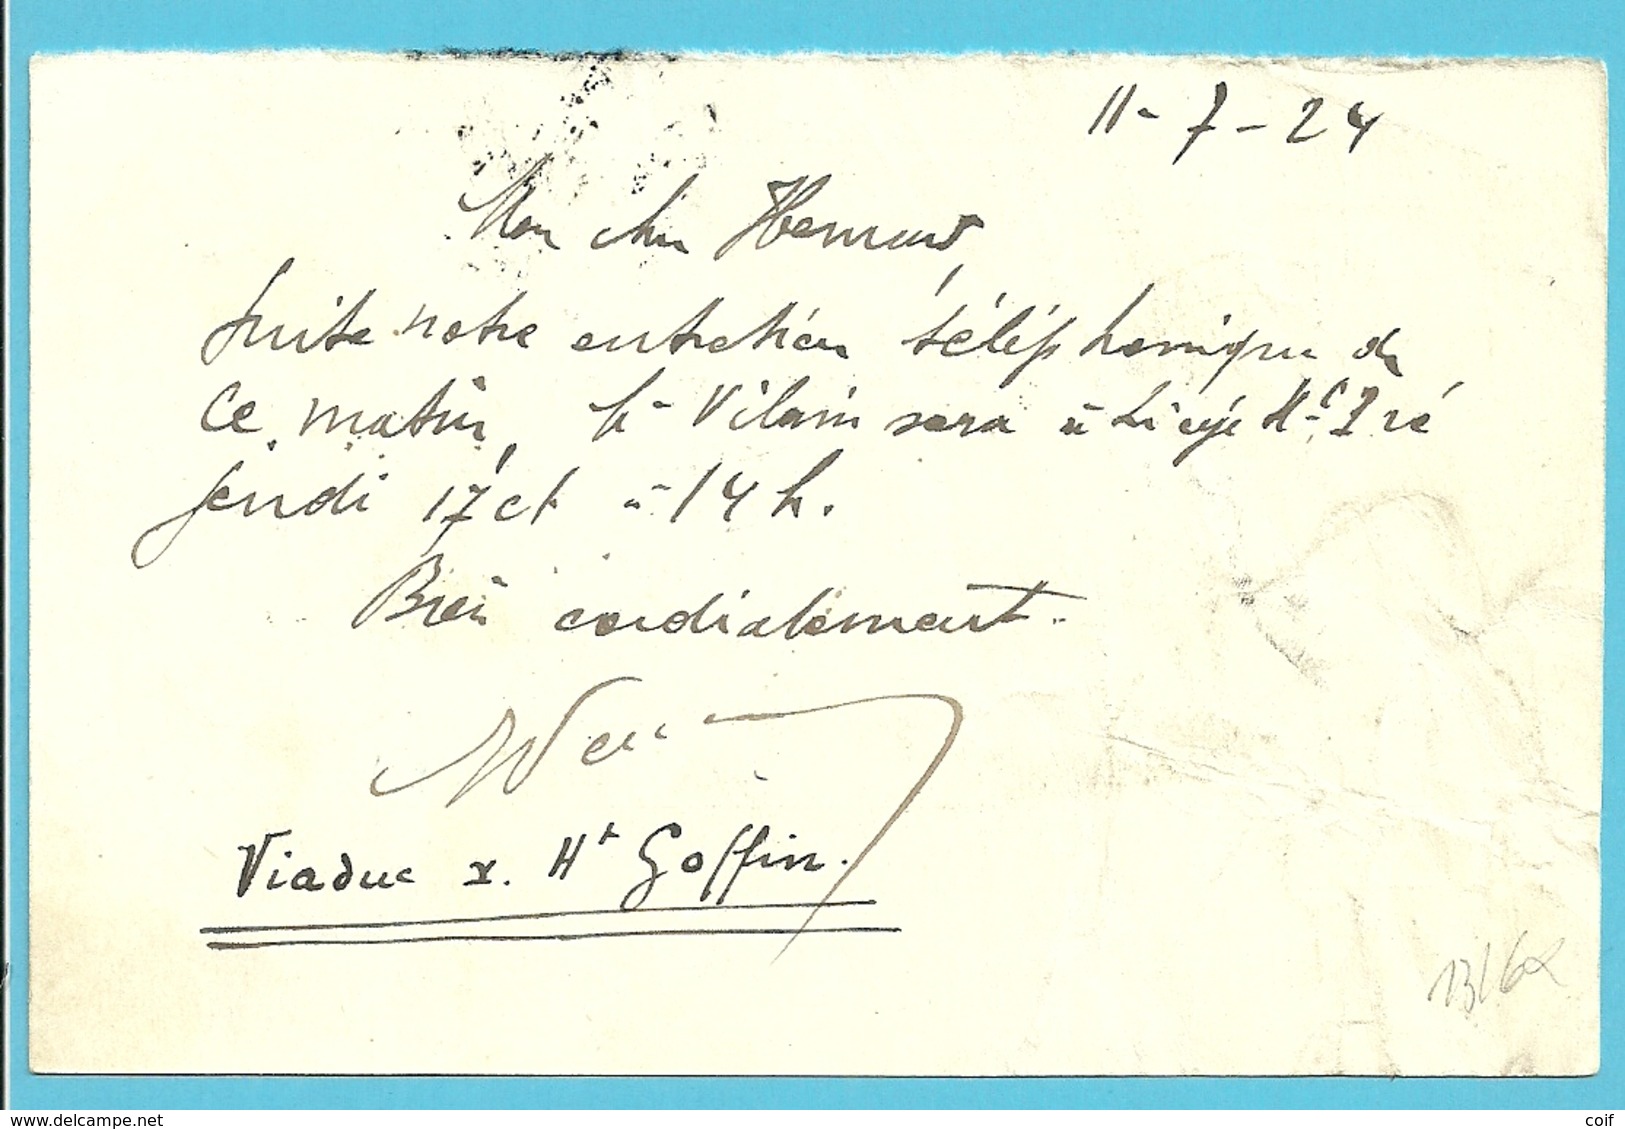 11-7-24
Mon cher
Suite notre entretien téléphonique de
ce matin, Mr Vilain sera à Liége Ht Pré
jeudi 17 ct à 14 h.
Bien cordialement.
Viaduc r. Ht Goffin.
delcampe.net
coif